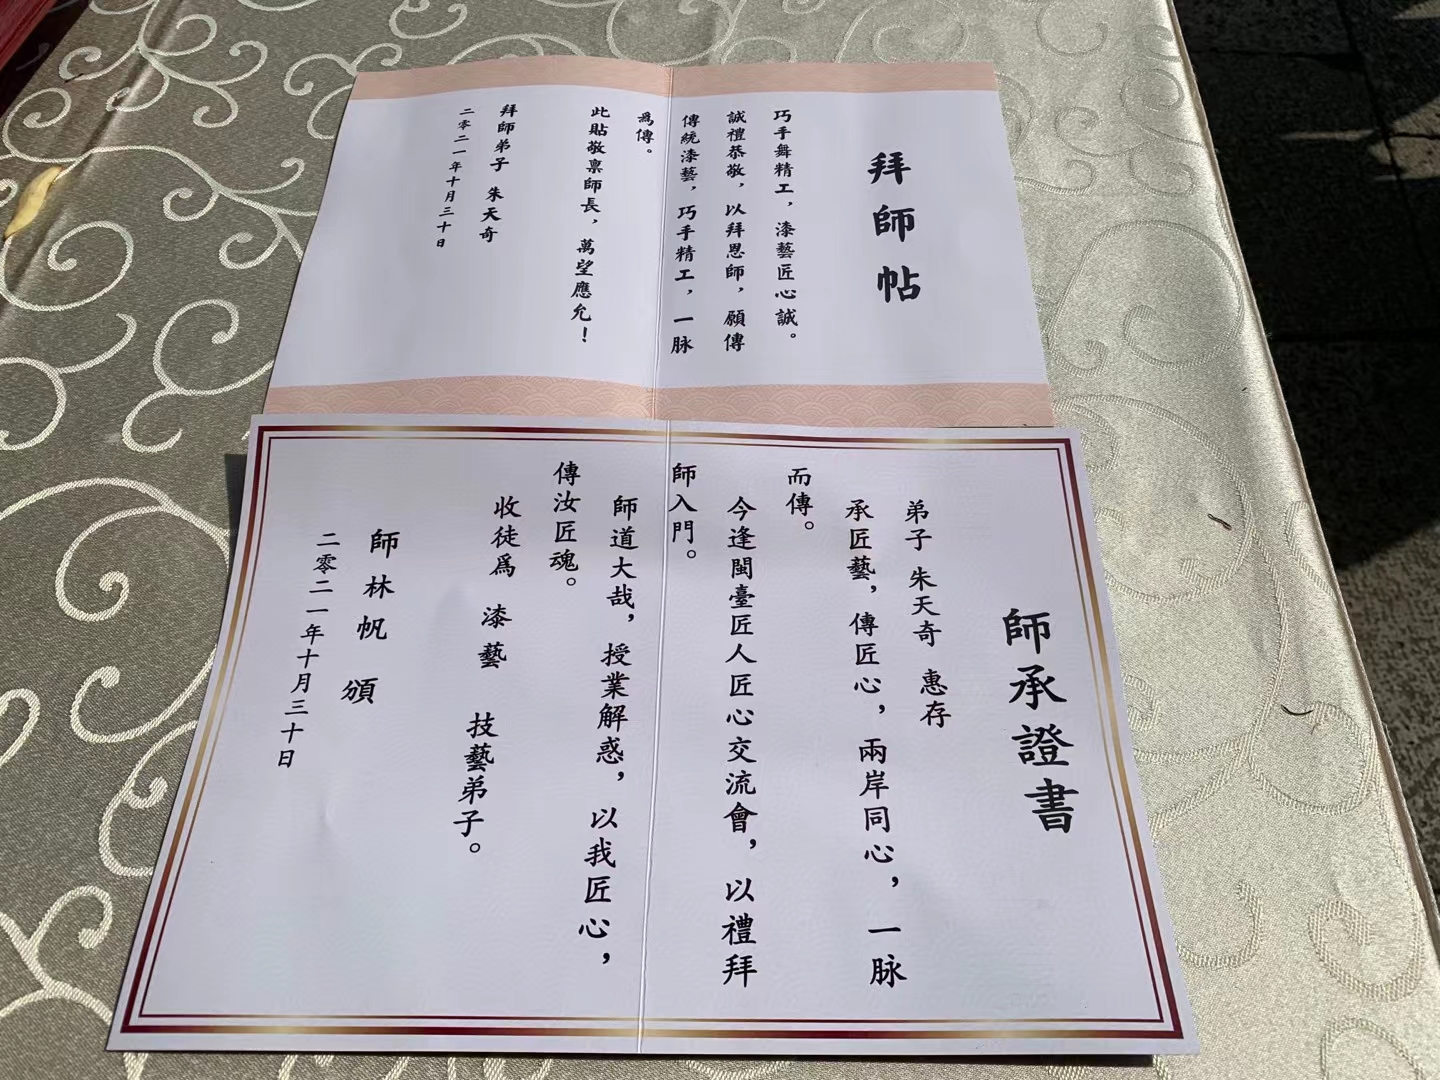 拜師帖
巧手舞精工，漆藝匠心誠。
誠禮恭敬，以拜恩師，願傳
傳統漆藝，巧手精工，一脉
爲傳。
此貼敬禀師長，萬望應允！
拜師弟子 朱天奇
二零二一年十月三十日
師承證書
弟子 朱天奇 惠存
承匠藝，傳匠心，兩岸同心，一脉
而傳。
今逢閩臺匠人匠心交流會，以禮拜
師入門。
師道大哉，授業解惑，以我匠心，
傳汝匠魂。
收徒爲 漆藝 技藝弟子。
師林帆 頒
二零二一年十月三十日